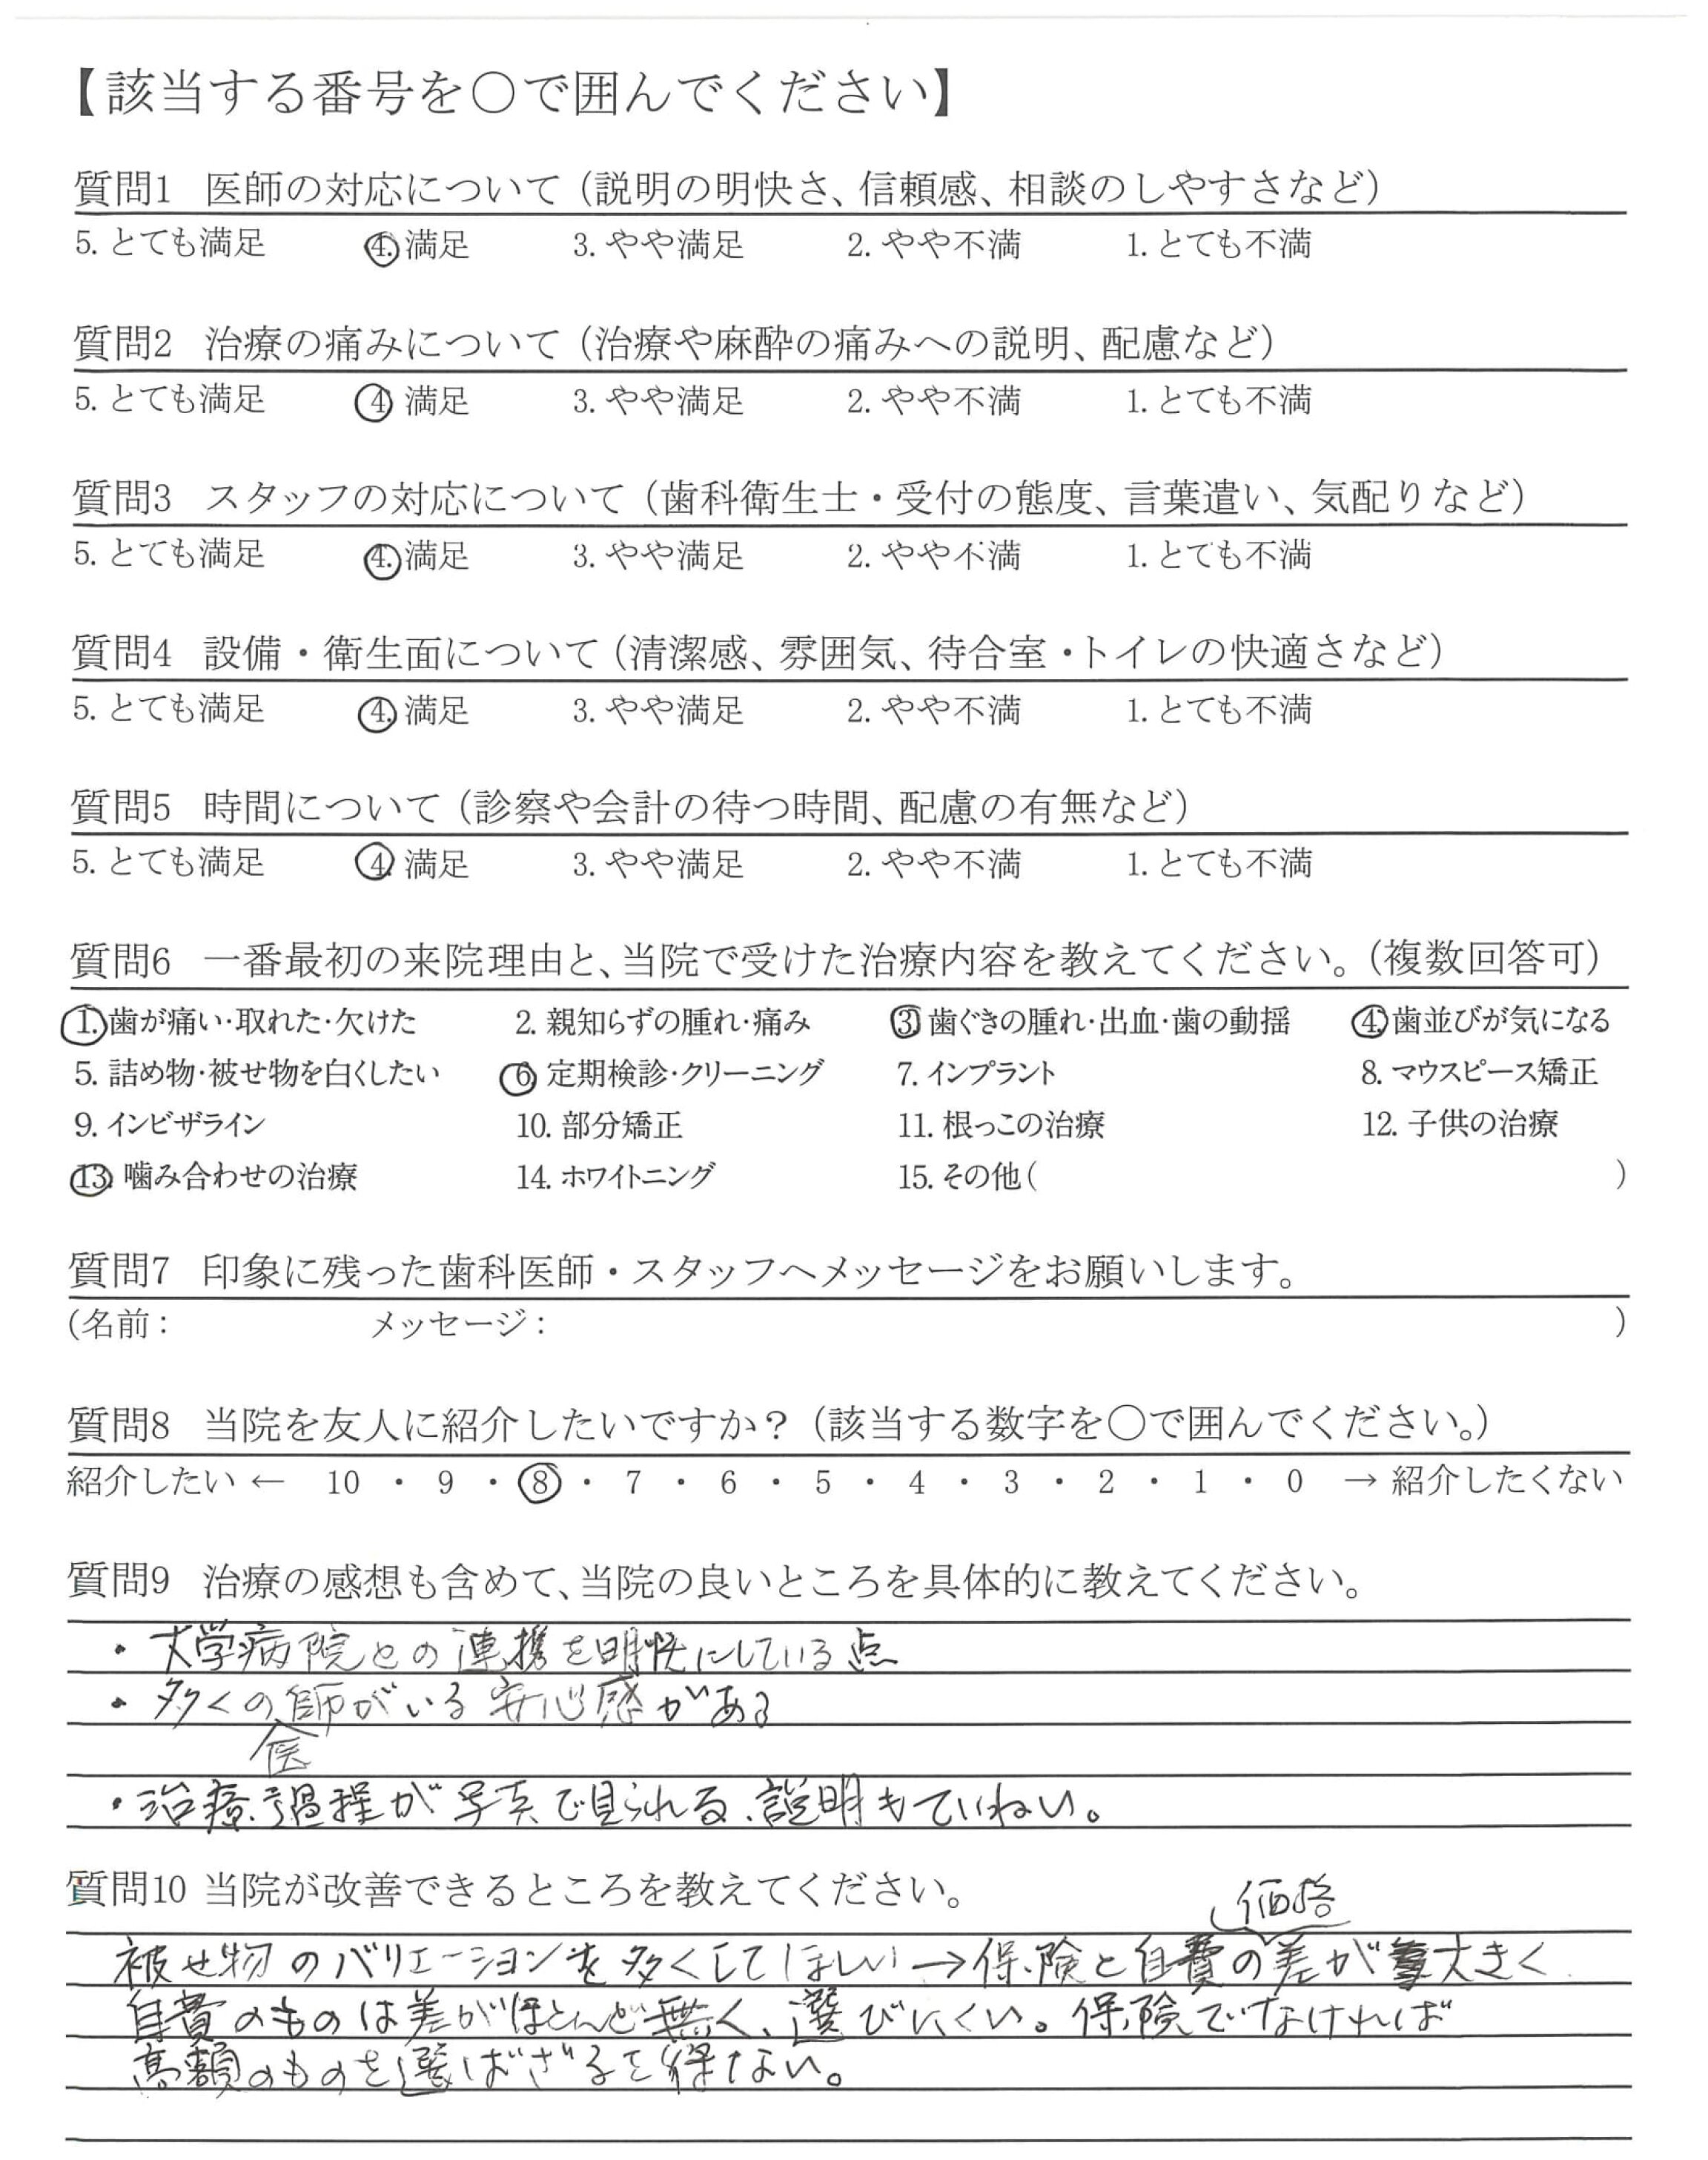 【該当する番号を○で囲んでください】
質問1 医師の対応について（説明の明快さ、信頼感、相談のしやすさなど）
5. とても満足 4. 満足 3. やや満足 2. やや不満 1. とても不満
質問2 治療の痛みについて（治療や麻酔の痛みへの説明、配慮など）
5. とても満足 4. 満足 3. やや満足 2. やや不満 1. とても不満
質問3 スタッフの対応について（歯科衛生士・受付の態度、言葉遣い、気配りなど）
5. とても満足 4. 満足 3. やや満足 2. やや不満 1. とても不満
質問4 設備・衛生面について（清潔感、雰囲気、待合室・トイレの快適さなど）
5. とても満足 4. 満足 3. やや満足 2. やや不満 1. とても不満
質問5 時間について（診察や会計の待つ時間、配慮の有無など）
5. とても満足 4. 満足 3. やや満足 2. やや不満 1. とても不満
質問6 一番最初の来院理由と、当院で受けた治療内容を教えてください。（複数回答可）
1. 歯が痛い・取れた・欠けた 2. 親知らずの腫れ・痛み 3. 歯ぐきの腫れ・出血・歯の動揺 4. 歯並びが気になる
5. 詰め物・被せ物を白くしたい 6. 定期検診・クリーニング 7. インプラント 8. マウスピース矯正
9. インビザライン 10. 部分矯正 11. 根っこの治療 12. 子供の治療
13. 噛み合わせの治療 14. ホワイトニング 15. その他（ ）
質問7 印象に残った歯科医師・スタッフへメッセージをお願いします。
（名前： メッセージ： ）
質問8 当院を友人に紹介したいですか？（該当する数字を○で囲んでください。）
紹介したい ← 10 ・ 9 ・ 8 ・ 7 ・ 6 ・ 5 ・ 4 ・ 3 ・ 2 ・ 1 ・ 0 → 紹介したくない
質問9 治療の感想も含めて、当院の良いところを具体的に教えてください。
・大学病院との連携を明快にしている点
・多くの医師がいる安心感がある
・治療過程が写真で見られる、説明もていねい。
質問10 当院が改善できるところを教えてください。
被せ物のバリエーションを多くしてほしい→保険と自費の価格差が大きく
自費のものは差がほとんど無く、選びにくい。保険でなければ
高額のものを選ばざるを得ない。